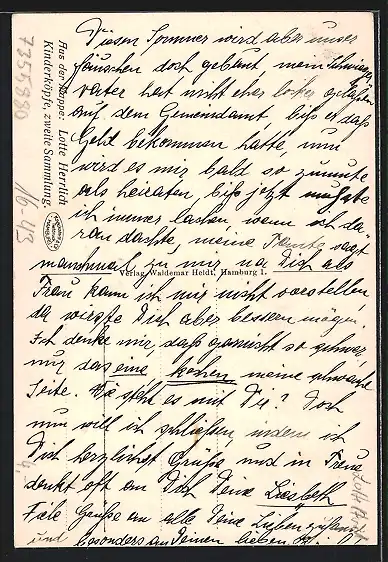 Diesen Sommer wird aber unser
Häuschen doch gebaut mein Schwieger
vater hat nicht eher locker gelassen
auf dem Gemeindamt biss er das
Geld bekommen hatte, nun
wird es mir bald so zumute
als heiraten, biss jetzt musste
ich immer lachen wenn ich da-
ran dachte, meine Tante sagt
manchmal zu mir na Dich als
Frau kann ich mir nicht vorstellen,
da wirst Dich aber bessern müssen.
Ich denke mir, dass garnicht so schwer,
nur das eine kochen meine schwache
Seite. Wie steht es mit Dir? Doch
nun will ich schließen indem ich
Dich herzlichst Grüße und in Treue
denkt oft an Dich Deine Liesbeth
Viele Grüße an alle Deine Lieben zuhause
und besonders an Deinen lieben
Verlag Waldemar Heldt, Hamburg 1.
Aus der Mappe: Lotte Herrlich
Kinderköpfe, zweite Sammlung.
7355980
16-43